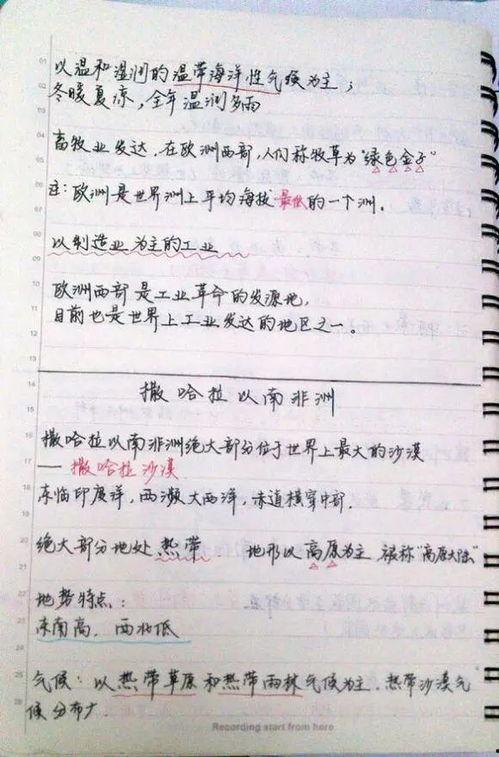 以温和湿润的温带海洋性气候为主；
冬暖夏凉，全年温润多雨
畜牧业发达，在欧洲西部，人们称牧草为“绿色金子”
注：欧洲是世界洲上平均海拔最低的一个洲。
以制造业为主的工业
欧洲西部是工业革命的发源地，
目前也是世界上工业发达的地区之一。
撒哈拉以南非洲
撒哈拉以南非洲绝大部分位于世界上最大的沙漠
— 撒哈拉沙漠
东临印度洋，西濒大西洋，赤道横穿中部．
绝大部分地处热带 地形以高原为主，被称“高原大陆
地势特点：
东南高．西北低
气候：以热带草原和热带雨林气候为主．热带沙漠气
候分布广．
Recording start from here